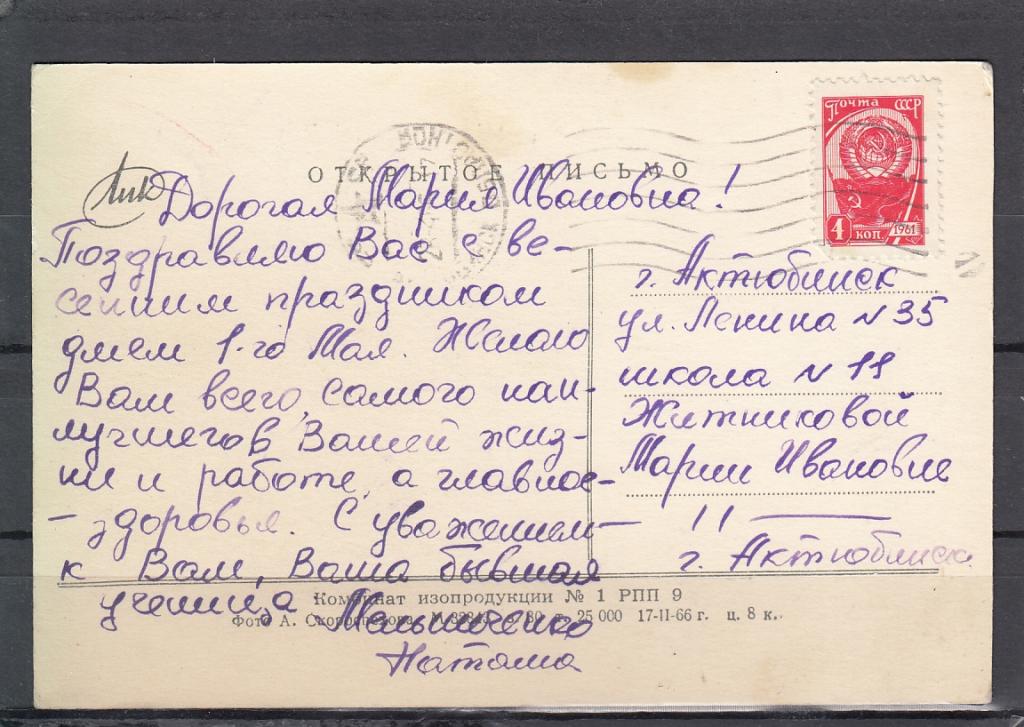 ОТКРЫТОЕ ПИСЬМО
Почта СССР
4 коп 1961
Дорогая Мария Ивановна!
Поздравляю Вас с ве-
сенним праздником
днем 1-го Мая. Желаю
Вам всего, самого наи-
лучшего в Вашей жиз-
ни и работе, а главное-
- здоровья. С уважением
к Вам, Ваша бывшая
ученица
Наташа
г. Актюбинск
ул. Ленина N 35
школа N 11
Житниковой
Марии Ивановне
г. Актюбинск
Комбинат изопродукции № 1 РПП 9
Фото А. Скороспехова 25 000 17-II-66 г. ц. 8 к.